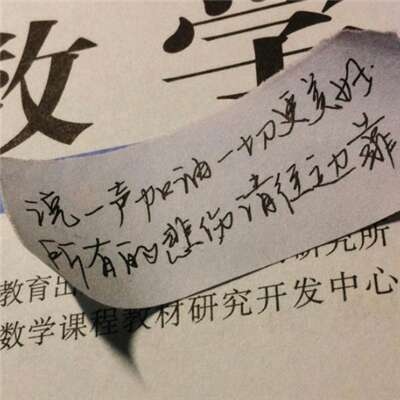 数学
说一声加油一切更美好
所有的悲伤请往边靠
研究所
教育出
数学课程教材研究开发中心